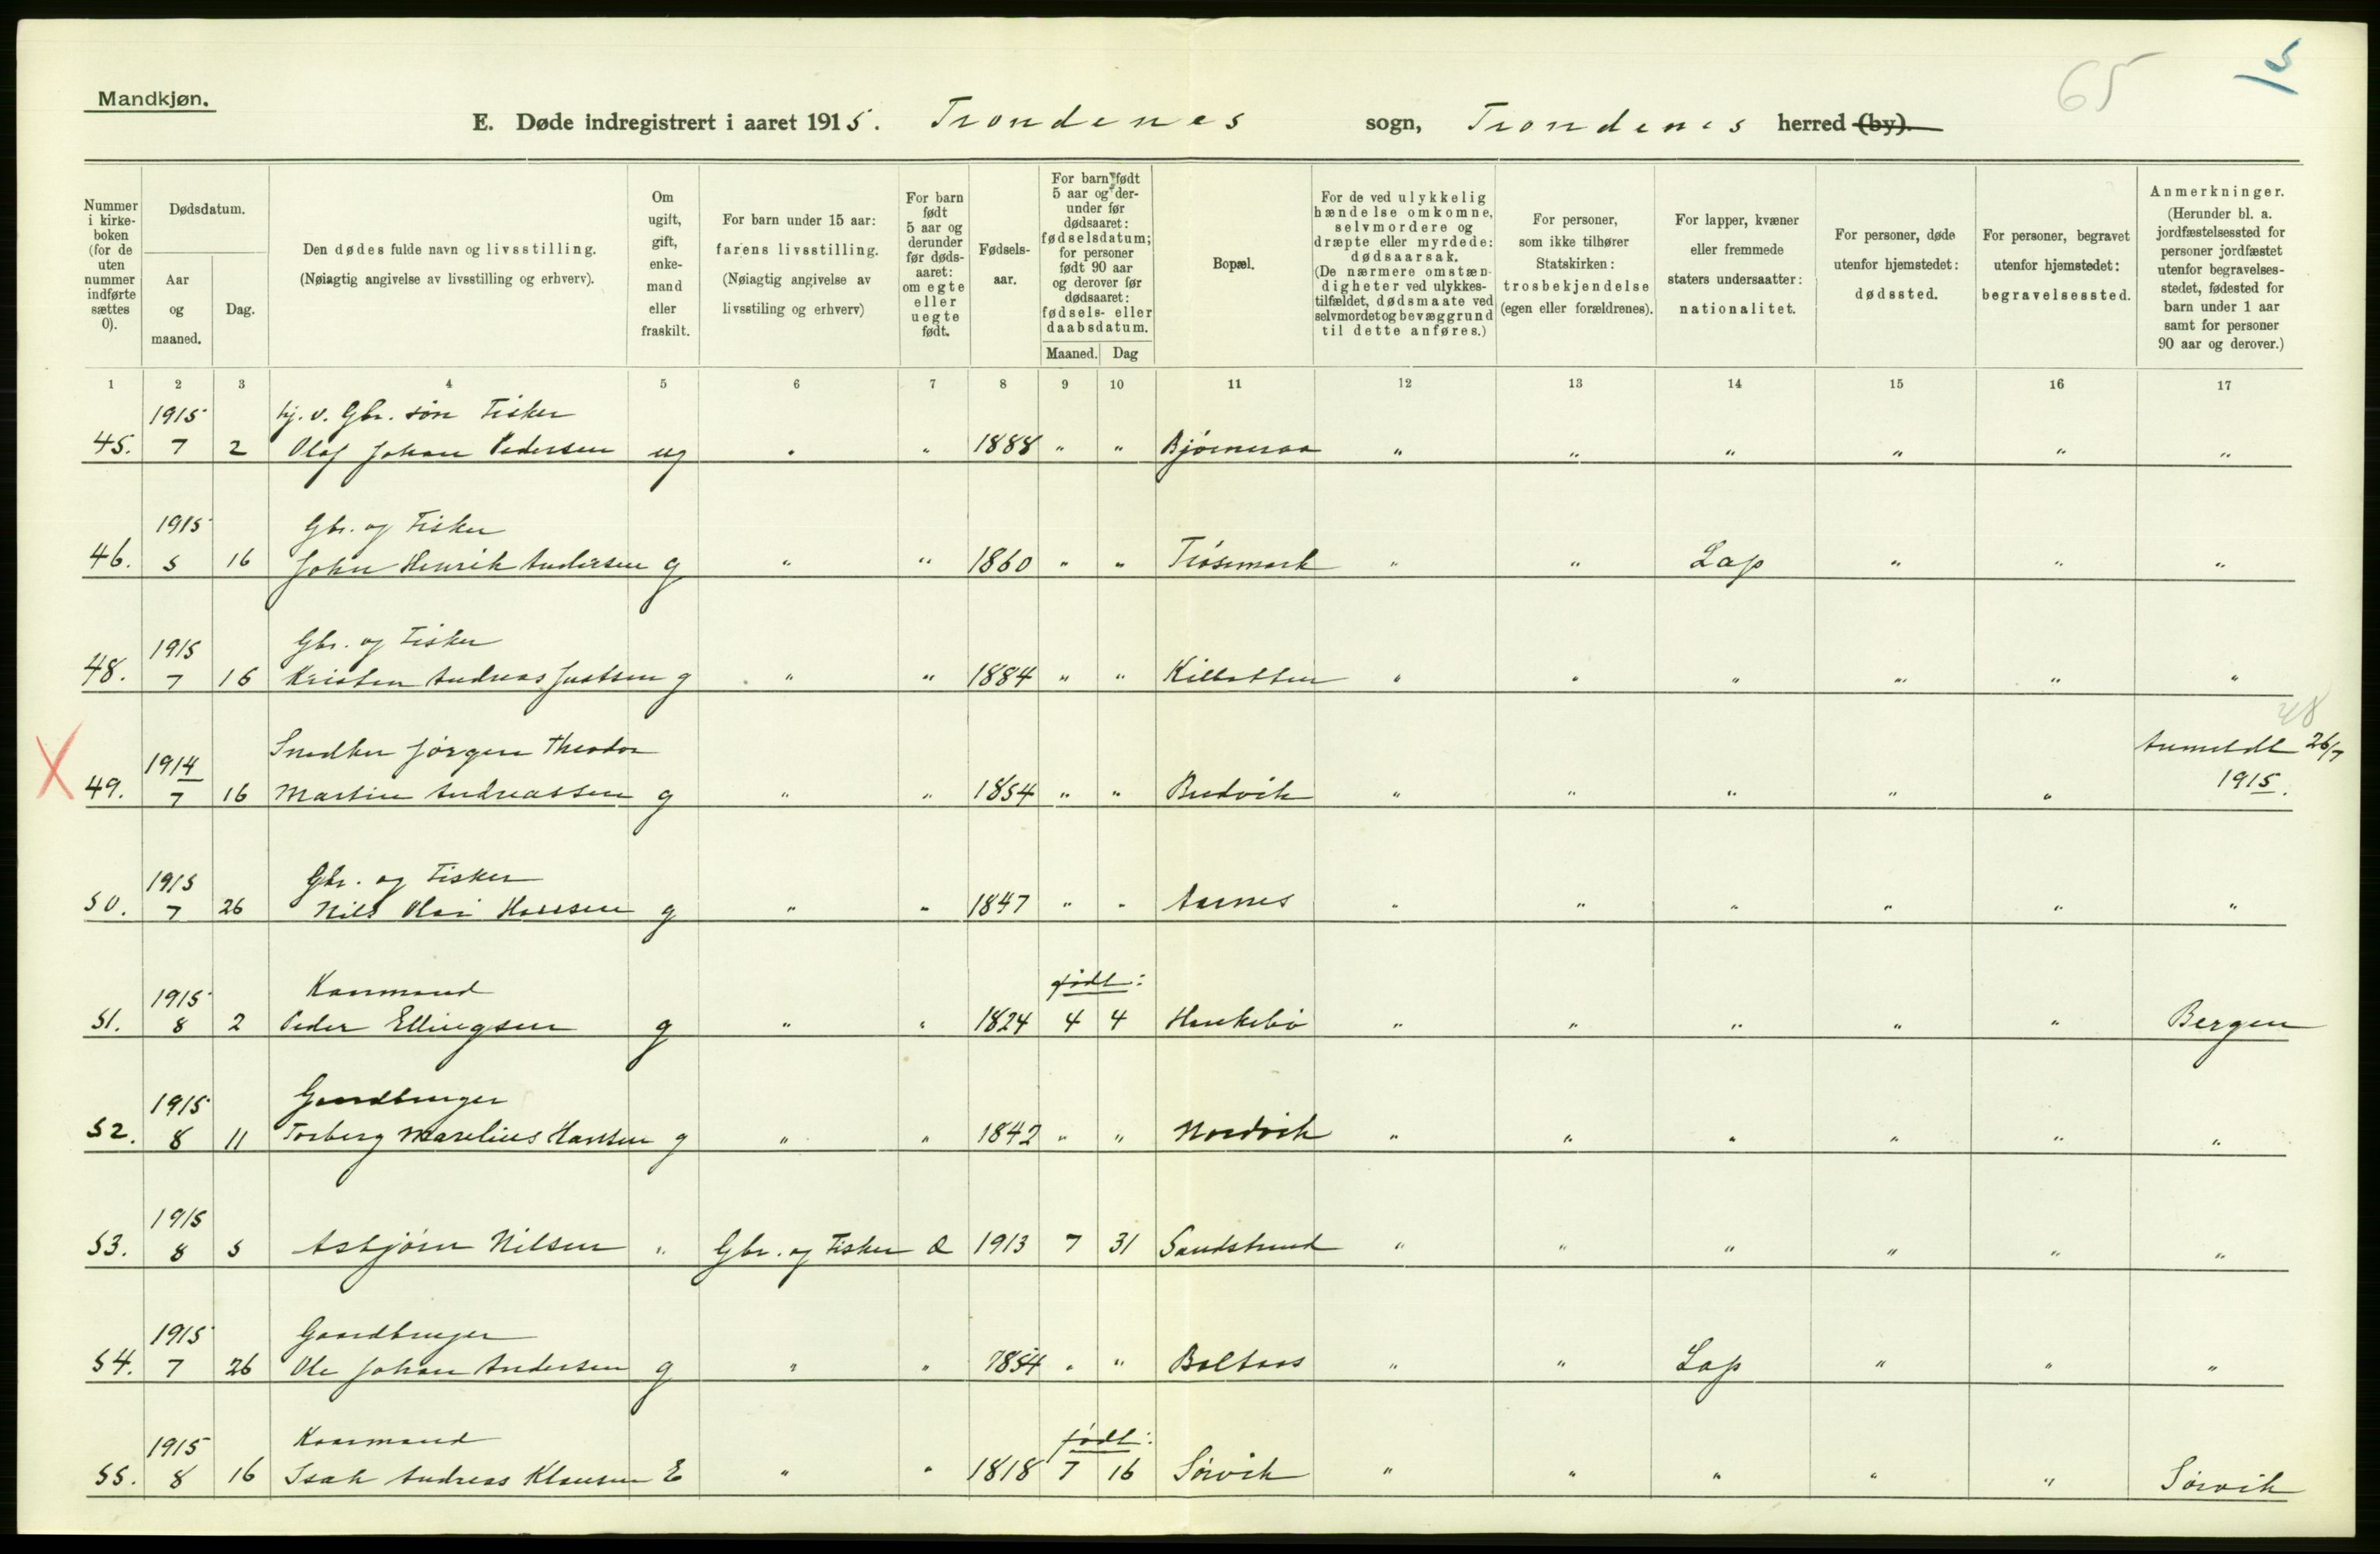 65
15
Mandkjøn.
E. Døde indregistrert i aaret 1915. Trondenes sogn, Trondenes herred (by).
Nummer i kirkeboken (for de uten nummer indførte sættes 0).
Dødsdatum.
Aar og maaned.
Dag.
Den dødes fulde navn og livsstilling.
(Nøiagtig angivelse av livsstilling og erhverv).
Om ugift, gift, enkemand eller fraskilt.
For barn under 15 aar: farens livsstilling. (Nøiagtig angivelse av livsstiling og erhverv)
For barn født 5 aar og derunder før dødsaaret: om egte eller uegte født.
Fødselsaar.
For barn født 5 aar og derunder før dødsaaret: fødselsdatum; for personer født 90 aar og derover før dødsaaret: fødsels- eller daabsdatum.
Maaned. Dag
Bopæl.
For de ved ulykkelig hændelse omkomne, selvmordere og dræpte eller myrdede: dødsaarsak. (De nærmere omstændigheter ved ulykkestilfældet, dødsmaate ved selvmordet og bevæggrund til dette anføres.)
For personer, som ikke tilhører Statskirken: trosbekjendelse (egen eller forældrenes).
For lapper, kvæner eller fremmede staters undersaatter: nationalitet.
For personer, døde utenfor hjemstedet: dødssted.
For personer, begravet utenfor hjemstedet: begravelsessted.
Anmerkninger. (Herunder bl. a. jordfæstelsessted for personer jordfæstet utenfor begravelsesstedet, fødested for barn under 1 aar samt for personer 90 aar og derover.)
1 2 3 4 5 6 7 8 9 10 11 12 13 14 15 16 17
1915 hj. v. Gbr. søn Fisker
45. 7 2 Olaf Johan Pedersen ug " " 1888 " " Bjørneraa " " " " " "
1915 Gbr. og Fisker
46. 5 16 John Henrik Andersen g " " 1860 " " Trøsemark " " Lap " " "
1915 Gbr. og Fisker
48. 7 16 Kristen Andreas Justsen g " " 1884 " " Kilbotten " " " " " "
48
1914 Snedker Jørgen Theodor Anmeldt 26/7
X 49. 7 16 Martin Andreassen g " " 1854 " " Bredvik " " " " " 1915.
1915 Gbr. og Fisker
50. 7 26 Nils Olai Hansen g " " 1847 " " Aarnes " " " " " "
1915 Kaarmand født:
51. 8 2 Peder Ellingsen g " " 1824 4 4 Hunkebø " " " " " Bergen
1915 Gaardbruger
52. 8 11 Torberg Marelius Hansen g " " 1842 " " Nordvik " " " " " "
1915
53. 8 5 Asbjørn Nilsen " Gbr. og Fisker Æ 1913 7 31 Sandstrand " " " " " "
1915 Gaardbruger
54. 7 26 Ole Johan Andersen g " " 1854 " " Boltaas " " Lap " " "
1915 Kaarmand født:
55. 8 16 Isak Andreas Klausen E " " 1818 7 16 Sørvik " " " " " Sørvik